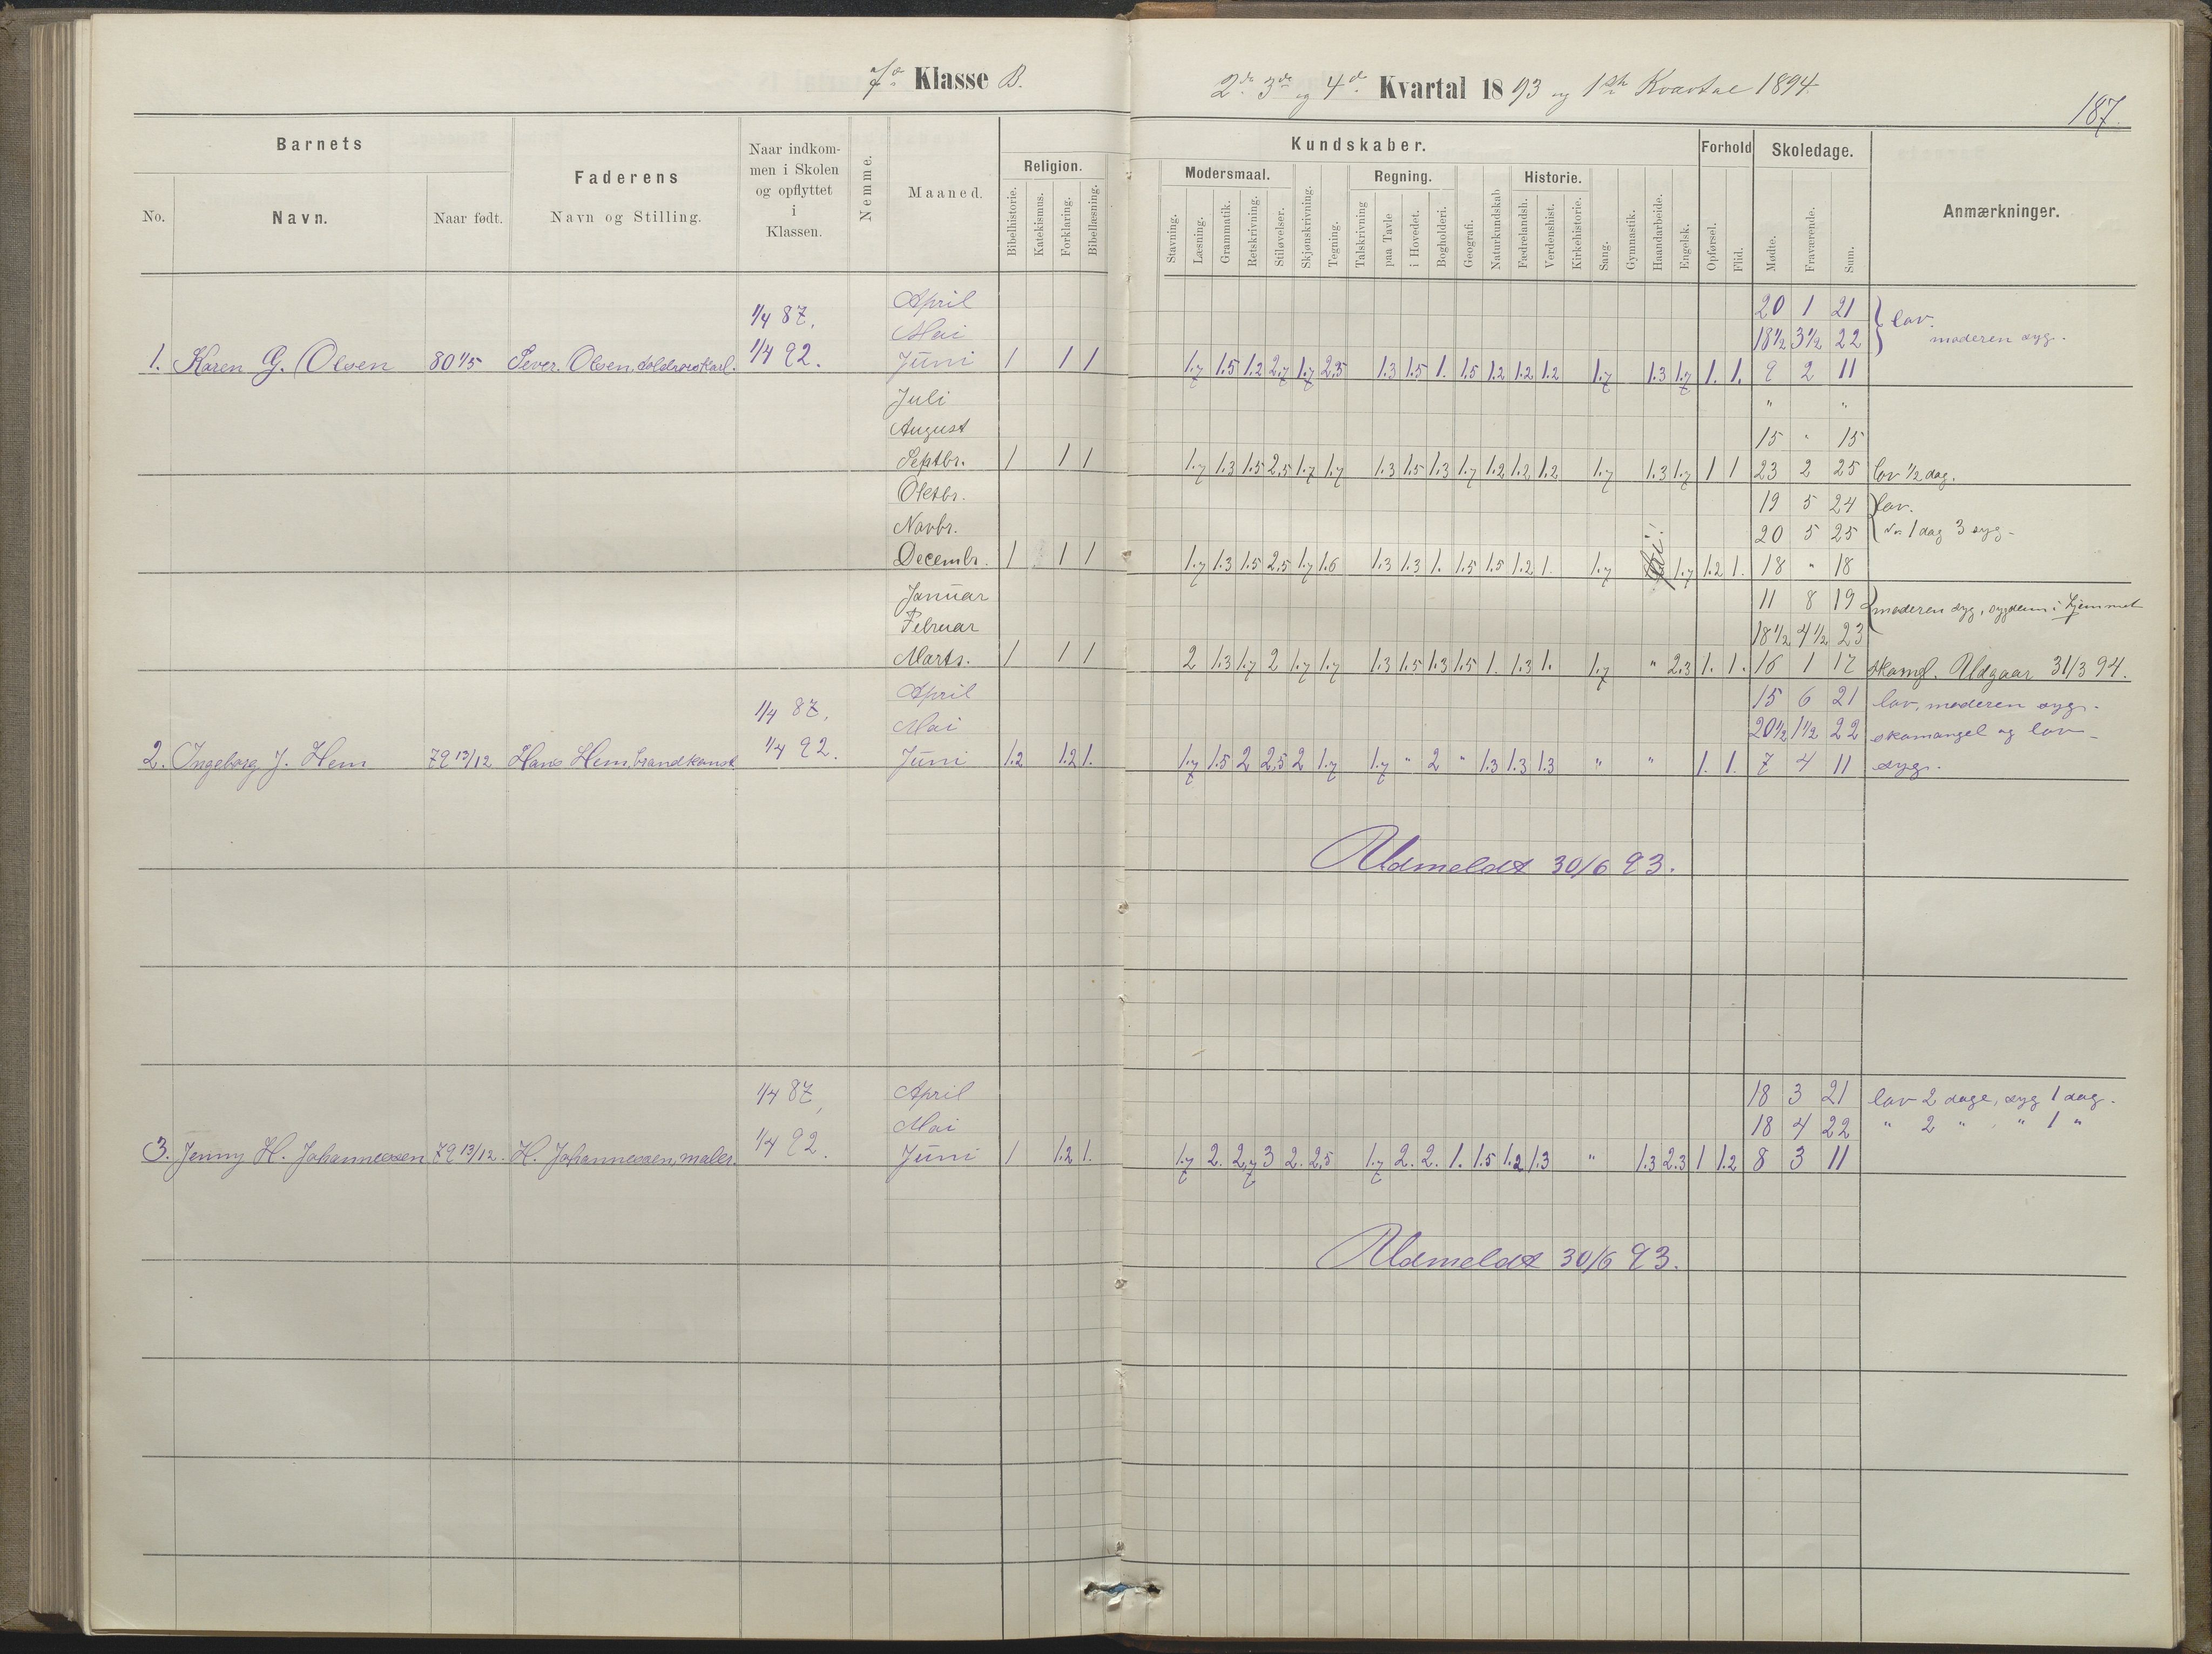 7de Klasse B.
2det 3de og 4de Kvartal 1893 og 1ste Kvartal 1894
187.
Barnets
No.
Navn.
Naar født.
Faderens
Navn og Stilling.
Naar indkom-
men i Skolen
og opflyttet
i
Klassen.
Nemme.
Maaned.
Religion.
Bibelhistorie.
Katekismus.
Forklaring.
Bibellæsning.
Kundskaber.
Modersmaal.
Stavning.
Læsning.
Grammatik.
Retskrivning.
Stiløvelser.
Skjønskrivning.
Tegning.
Regning.
Talskrivning
paa Tavle
i Hovedet.
Bogholderi.
Geografi.
Naturkundskab
Historie.
Fædrelandsh.
Verdenshist.
Kirkehistorie.
Sang.
Gymnastik.
Haandarbeide.
Engelsk.
Forhold
Opførsel.
Flid.
Skoledage.
Mødte.
Fraværende.
Sum.
Anmærkninger.
1/4 87. April 20 1 21 lov.
Mai 18½ 3½ 22 moderen syg.
1. Karen G. Olsen 80 1/5 Sever Olsen, 1/4 92. Juni 1 1 1 1.7 1.5 1.2 2.7 1.7 2.5 1.3 1.5 1. 1.5 1.2 1.2 1.2 1.7 1.3 1.7 1. 1. 9 2 11
Juli " "
August 15 " 15
Septbr. 1 1 1 1.7 1.3 1.5 2.5 1.7 1.7 1.3 1.5 1.3 1.7 1.2 1.2 1.2 1.7 1.3 1.7 1 1 23 2 25 lov ½ dag.
Oktbr. 19 5 24 lov.
Novbr. 20 5 25 1 dag 3 syg
Decembr. 1 1 1 1.7 1.3 1.5 2.5 1.7 1.6 1.3 1.3 1. 1.5 1.5 1.2 1. 1.7 fri! 1.7 1.2 1. 18 " 18
Januar 11 8 19 moderen syg, sygdom i hjemmet
Februar 18½ 4½ 23
Marts. 1 1 1 2 1.3 1.7 2 1.7 1.7 1.3 1.5 1.3 1.5 1. 1.3 1. 1.7 " 2.3 1. 1. 16 1 17 skomgl. Udgaar 31/3 94.
1/4 87. April 15 6 21 lov, moderen syg.
Mai 20½ 1½ 22 skomangel og lov
2. Ingeborg J. Hem 79 13/12 Hans Hem, brandkonst. 1/4 92. Juni 1.2 1.2 1. 1.7 1.5 2 2.5 2 1.7 1.7 " 2 " 1.3 1.3 1.3 " " 1. 1. 7 4 11 syg.
Udmeldt 30/6 93.
1/4 87, April 18 3 21 lov 2 dage, syg 1 dag.
Mai 18 4 22 " 2 " , " 1 "
3. Jenny H. Johannessen 79 13/12. H. Johannessen, maler. 1/4 92. Juni 1 1.2 1. 1.7 2. 2.7 3 2. 2.5 1.7 2. 2. 1. 1.5 1.2 1.3 " 1.3 2.3 1 1.2 8 3 11
Udmeldt 30/6 93.